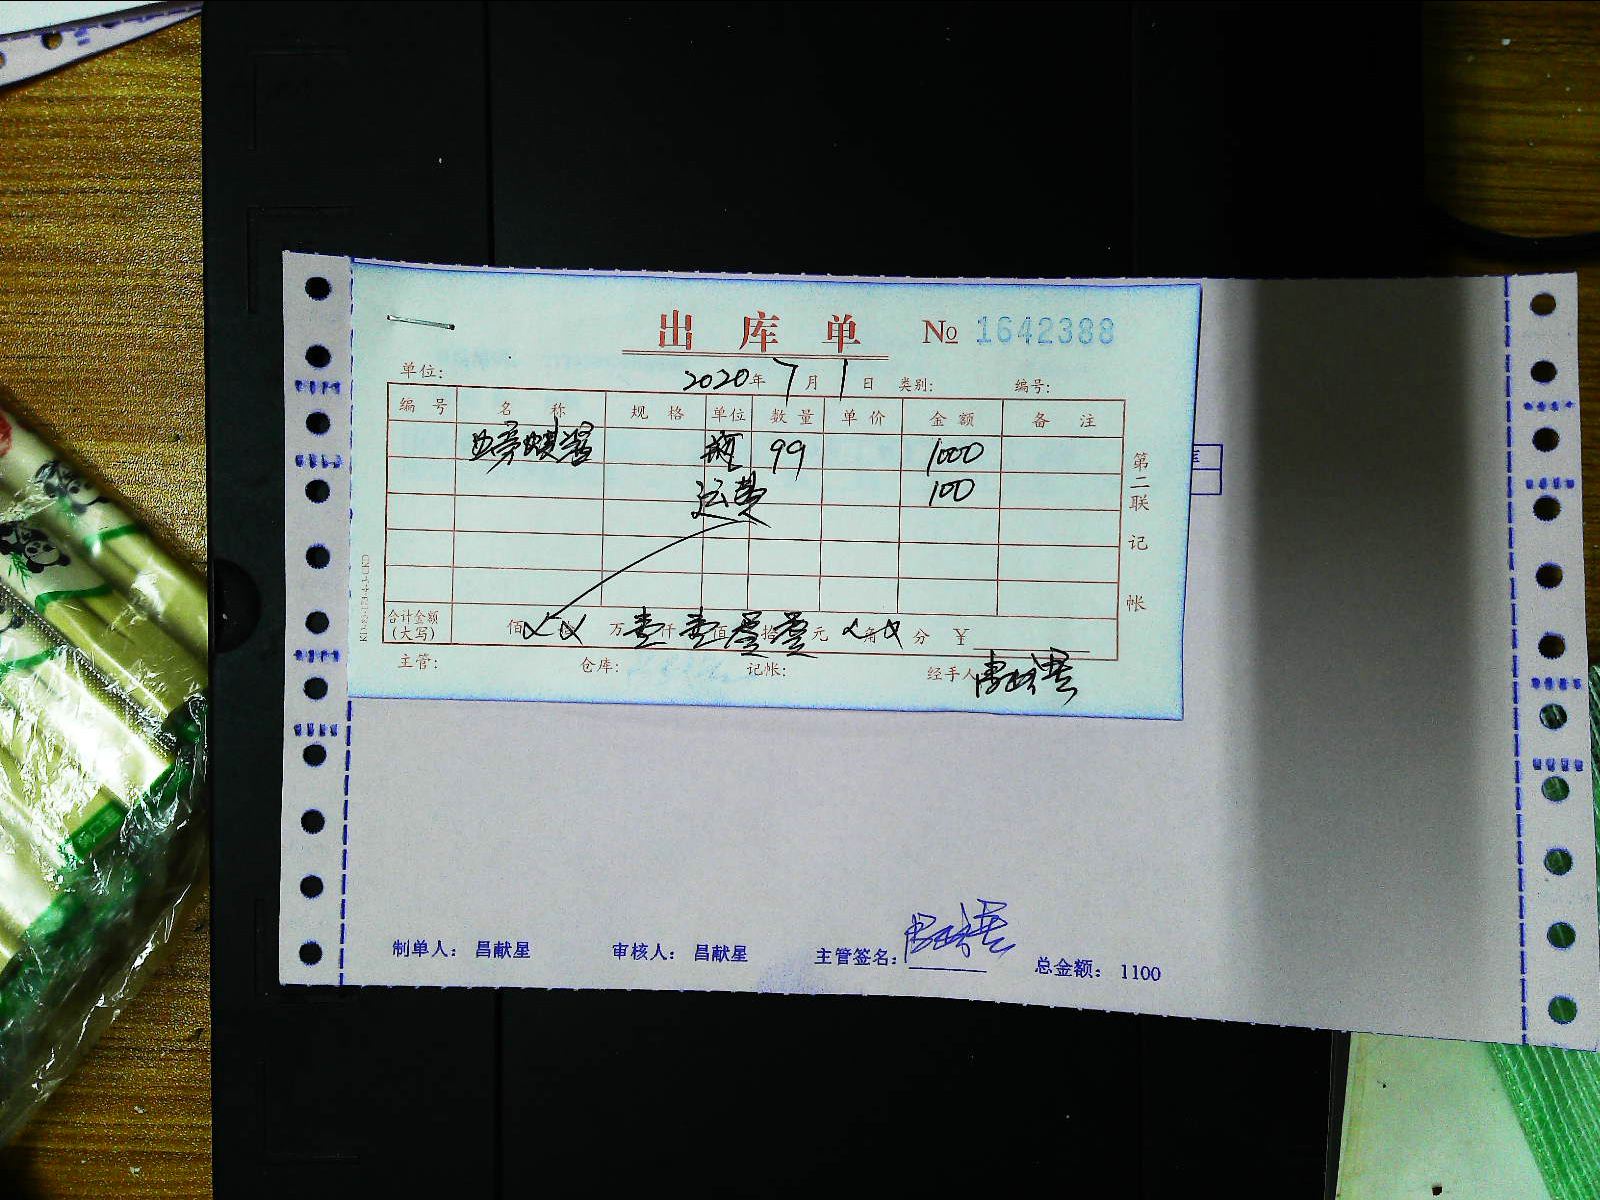 出库单 № 1642388
单位: 2020年7月1日 类别: 编号:
编号 名称 规格 单位 数量 单价 金额 备注
瓶 99 1000
运费 100
合计金额(大写) 佰 万壹仟壹佰零拾零元 角 分 ¥
主管: 仓库: 记帐: 经手人
第二联 记帐
制单人: 昌献星 审核人: 昌献星 主管签名: 总金额: 1100